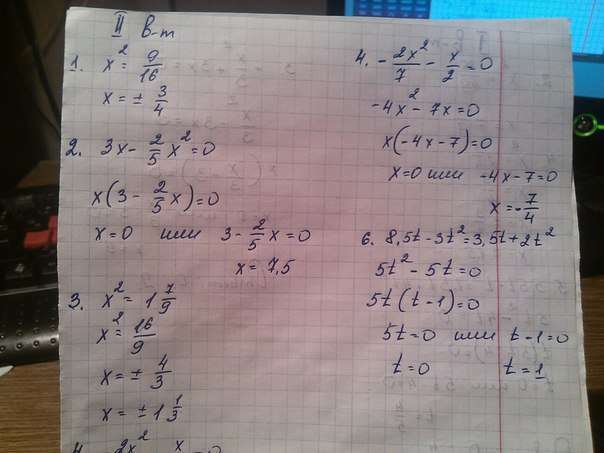 II в-т
1. x² = 9/16
x = ± 3/4
2. 3x - 2/5 x² = 0
x(3 - 2/5 x) = 0
x = 0 или 3 - 2/5 x = 0
x = 7,5
3. x² = 1 7/9
x² = 16/9
x = ± 4/3
x = ± 1 1/3
4. - 2x²/7 - x/2 = 0
-4x² - 7x = 0
x(-4x - 7) = 0
x = 0 или -4x - 7 = 0
x = - 7/4
6. 8,5t - 3t² = 3,5t + 2t²
5t² - 5t = 0
5t(t - 1) = 0
5t = 0 или t - 1 = 0
t = 0 t = 1